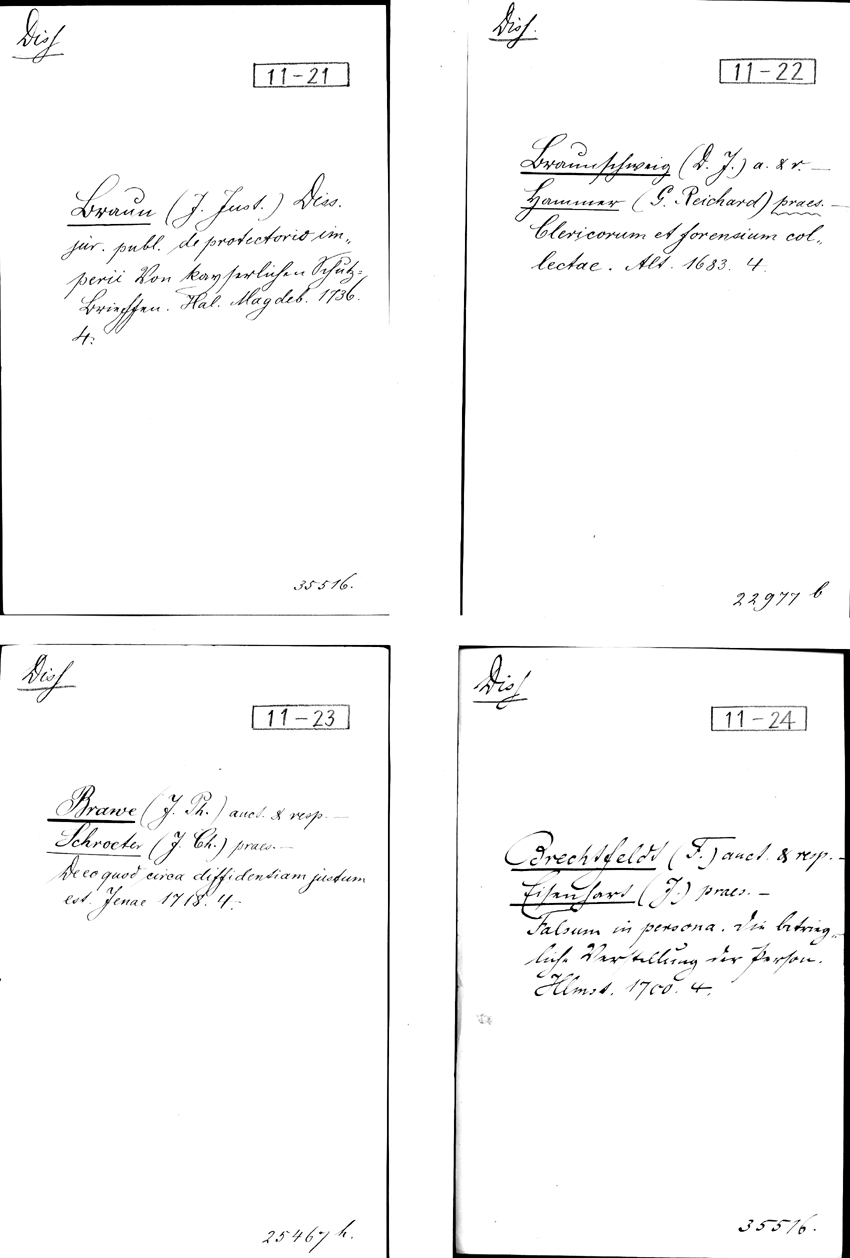 Diss
11-21
Braun (J. Just.) Diss.
jur. publ. de protectorio im„
perii Von kayserlichen Schutz=
Brieffen. Hal. Magdeb. 1736.
4.
35516.
Diss.
11-22
Braunschweig (D. J.) a. & r. —
Hammer (G. Reichard) praes. —
Clericorum et forensium col„
lectae. Alt. 1683. 4.
22977 b
Diss
11-23
Brawe (J. Ph.) auct. & resp. —
Schroeter (J. Ch.) praes. —
De eo quod circa diffidentiam justum
est. Jenae 1718. 4.
25467 h.
Diss
11-24
Brechtfeldt (F.) auct. & resp. —
Eisenhart (J.) praes. —
Falsum in persona. Die betrieg„
liche Verstellung der Person.
Hlmst. 1700. 4.
35516.